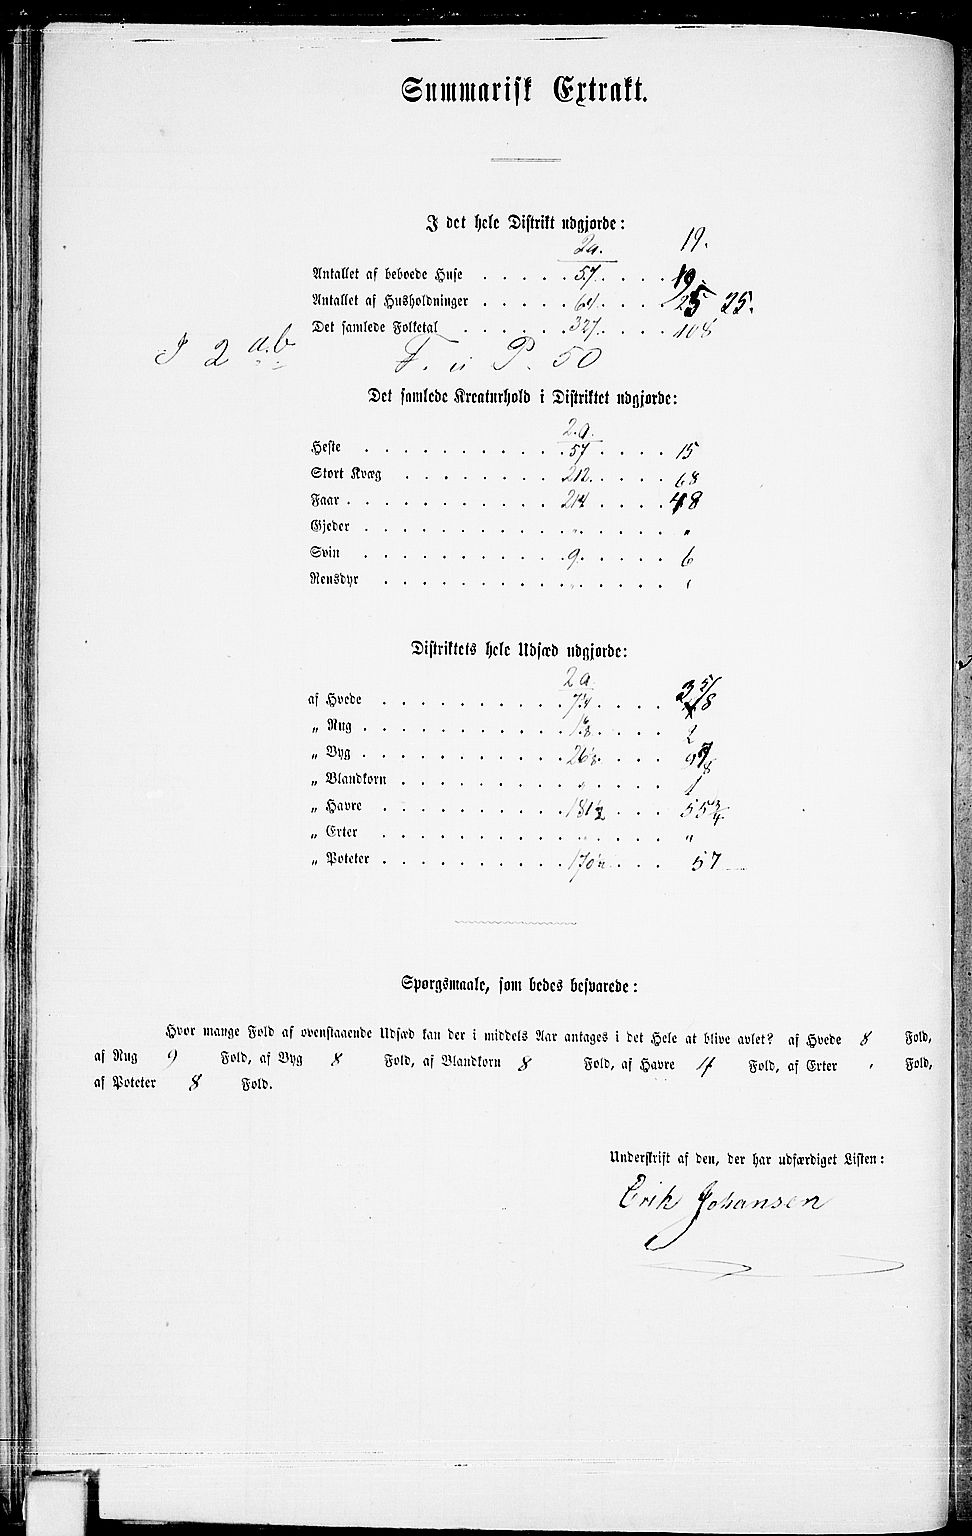 Summarisk Extrakt.
I det hele Distrikt udgjorde:
2a. 19.
Antallet af beboede Huse . . . . . 57. . . . . 19.
Antallet af Husholdninger . . . . . 64 . . . . 25 25.
Det samlede Folketal . . . . . 327. . . . . 108
I 2 a. b T. ü P. 50
Det samlede Kreaturhold i Distriktet udgjorde:
2.a.
Heste . . . . . 57 . . . . 15
Stort Kvæg . . . . . 212. . . . . 68
Faar . . . . . 214 . . . . 48
Gjeder . . . . . „ . . . . „
Svin . . . . . 9. . . . . 6
Rensdyr . . . . . „ . . . . „
Distriktets hele Udsæd udgjorde:
2a.
af Hvede . . . . . 7 3/4 . . . . 3 5/8
„ Rug . . . . . . . . . 2
„ Byg . . . . . 26 . . . . 9 7/8
„ Blandkorn . . . . . „ . . . . 1
„ Havre . . . . . 181 1/2 . . . . 55 3/4
„ Erter . . . . . „ . . . . „
„ Poteter . . . . . 170 . . . . 57
Spørgsmaale, som bedes besvarede:
Hvor mange Fold af ovenstaaende Udsæd kan der i middels Aar antages i det Hele at blive avlet? af Hvede 8 Fold,
af Rug 9 Fold, af Byg 8 Fold, af Blandkorn 8 Fold, af Havre 4 Fold, af Erter „ Fold,
af Poteter 8 Fold.
Underskrift af den, der har udfærdiget Listen:
Erik Johansen